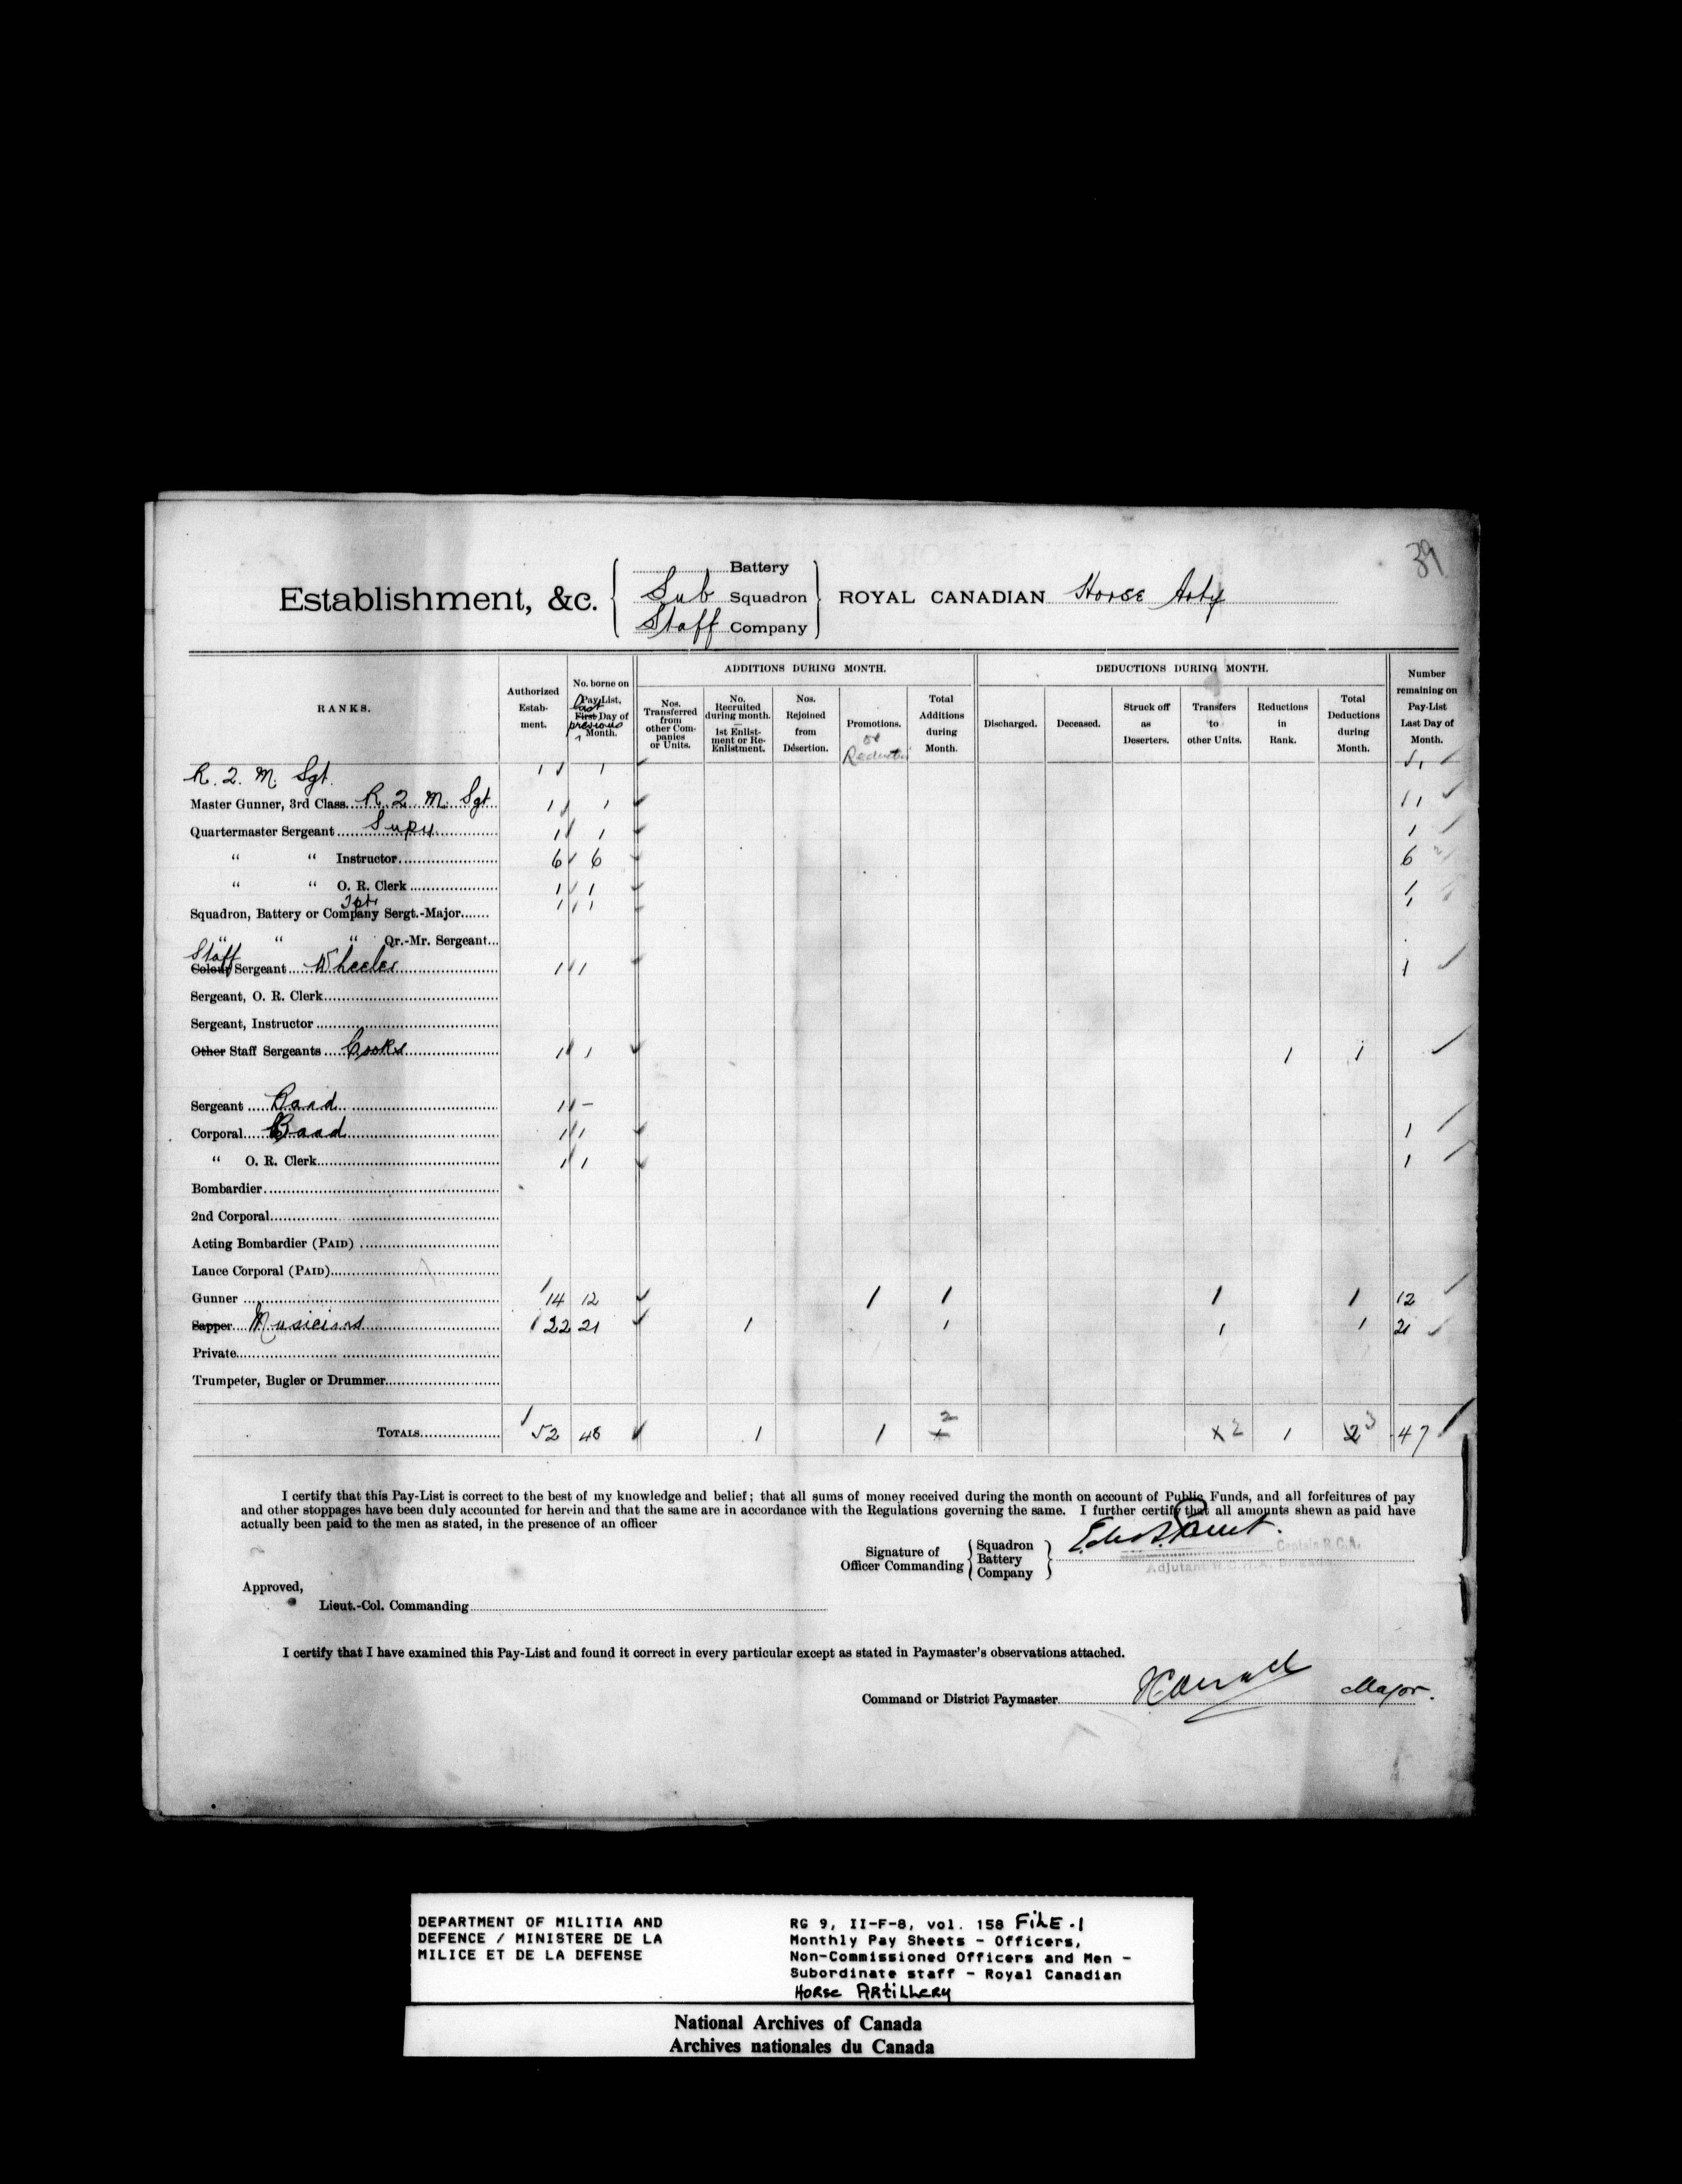 39
Battery
Establishment, &c. Sub Squadron ROYAL CANADIAN Horse Arty
Staff Company
RANKS.
Authorized Establishment.
No. borne on Pay-List, last First Day of previous Month.
ADDITIONS DURING MONTH.
Nos. Transferred from other Companies or Units.
No. Recruited during month. — 1st Enlistment or Re-Enlistment.
Nos. Rejoined from Desertion.
Promotions. or Reduction
Total Additions during Month.
DEDUCTIONS DURING MONTH.
Discharged.
Deceased.
Struck off as Deserters.
Transfers to other Units.
Reductions in Rank.
Total Deductions during Month.
Number remaining on Pay-List Last Day of Month.
R. Q. M. Sgt. 1 1 1
Master Gunner, 3rd Class R Q M Sgt 1 1 1
Quartermaster Sergeant Supy. 1 1 1
“ “ Instructor 6 6 6
“ “ O. R. Clerk 1 1 1
Squadron, Battery or Company Sergt.-Major 1 1 1
“ “ “ Qr.-Mr. Sergeant
Staff
Colour Sergeant Wheeler 1 1 1
Sergeant, O. R. Clerk
Sergeant, Instructor
Other Staff Sergeants Cooks 1 1 1 1
Sergeant Band 1 –
Corporal Band 1 1 1
“ O. R. Clerk 1 1 1
Bombardier
2nd Corporal
Acting Bombardier (PAID)
Lance Corporal (PAID)
Gunner 14 12 1 1 1 1 12
Sapper Musicians 22 21 1 1 1 1 21
Private
Trumpeter, Bugler or Drummer
TOTALS 52 48 1 1 2 2 1 3 47
I certify that this Pay-List is correct to the best of my knowledge and belief; that all sums of money received during the month on account of Public Funds, and all forfeitures of pay
and other stoppages have been duly accounted for herein and that the same are in accordance with the Regulations governing the same. I further certify that all amounts shewn as paid have
actually been paid to the men as stated, in the presence of an officer
Signature of Officer Commanding Squadron Battery Company
Captain R.C.A.
Adjutant R.C.H.A. Brigade
Approved,
Lieut.-Col. Commanding
I certify that I have examined this Pay-List and found it correct in every particular except as stated in Paymaster's observations attached.
Command or District Paymaster Major.
DEPARTMENT OF MILITIA AND
DEFENCE / MINISTERE DE LA
MILICE ET DE LA DEFENSE
RG 9, II-F-8, vol. 158 FiLE .1
Monthly Pay Sheets - Officers,
Non-Commissioned Officers and Men -
Subordinate staff - Royal Canadian
HORSE ARTILLERY
National Archives of Canada
Archives nationales du Canada